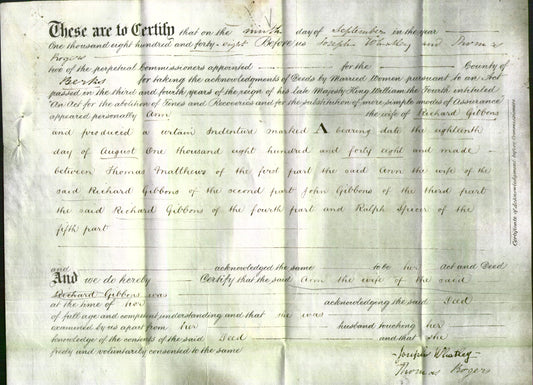 These are to Certify that on the ninth day of September in the year
One thousand eight hundred and forty-eight Before us Joseph Whatley and Thomas
Rogers
two of the perpetual Commissioners appointed for the County of
Berks for taking the acknowledgments of Deeds by Married Women pursuant to an Act
passed in the third and fourth years of the reign of his late Majesty King William the Fourth intituled
"An Act for the abolition of Fines and Recoveries and for the substitution of more simple modes of Assurance
appeared personally Ann the wife of Richard Gibbons
and produced a certain Indenture marked A bearing date the eighteenth
day of August One thousand eight hundred and forty eight and made
between Thomas Matthews of the first part the said Ann the wife of the
said Richard Gibbons of the second part John Gibbons of the third part
the said Richard Gibbons of the fourth part and Ralph Spicer of the
fifth part
and acknowledged the same to be her Act and Deed
And we do hereby Certify that the said Ann the wife of the said
Richard Gibbons was
at the time of her acknowledging the said Deed
of full age and competent understanding and that she was
examined by us apart from her husband touching her
knowledge of the contents of the said Deed and that she
freely and voluntarily consented to the same
Joseph Whatley
Thomas Rogers
Certificate of Acknowledgment before Commissioners